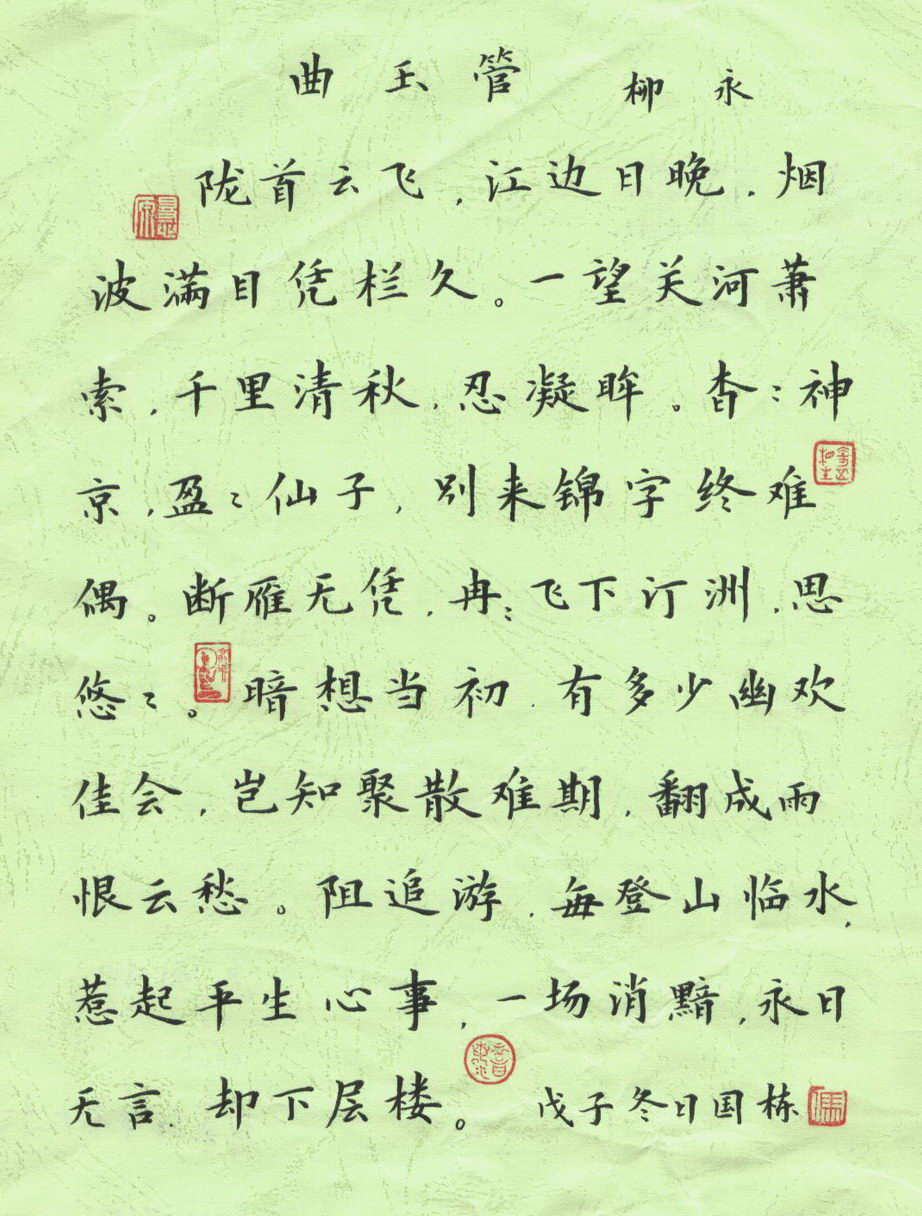 曲玉管 柳永
陇首云飞，江边日晚，烟
波满目凭栏久。一望关河萧
索，千里清秋，忍凝眸。杳:神
京，盈:仙子，别来锦字终难
偶。断雁无凭，冉:飞下汀洲，思
悠:。暗想当初，有多少幽欢
佳会，岂知聚散难期，翻成雨
恨云愁。阻追游，每登山临水，
惹起平生心事，一场消黯，永日
无言，却下层楼。 戊子冬日国栋